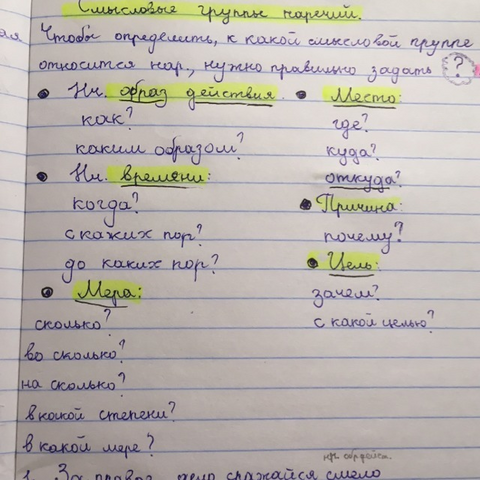 Смысловые группы наречий.
Чтобы определить, к какой смысловой группе
относится нар., нужно правильно задать ?
• Нч. образ действия.
как?
каким образом?
• Нч. времени:
когда?
с каких пор?
до каких пор?
• Мера:
сколько?
во сколько?
на сколько?
в какой степени?
в какой мере?
• Место:
где?
куда?
откуда?
• Причина:
почему?
• Цель:
зачем?
с какой целью?
1. За правое дело сражайся смело